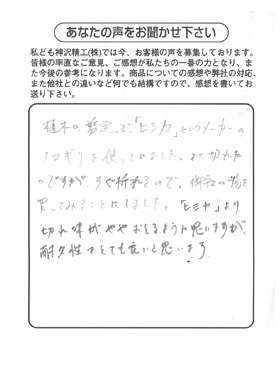 あなたの声をお聞かせ下さい
私ども神沢精工(株)では今、お客様の声を募集しております。
皆様の率直なご意見、ご感想が私たちの一番の力となり、ま
た今後の参考になります。商品についての感想や弊社の対応、
また他社との違いなど何でも結構ですので、感想を書いてお
送り下さい。
植木の剪定で、「ヒシカ」というメーカーの
ノコギリを使っていました。よく切れた
のですが、すぐ折れるので、御社の物を
買ってみることにしました。「ヒシカ」より
切れ味がややおとるように思いますが、
耐久性はとても良いと思います